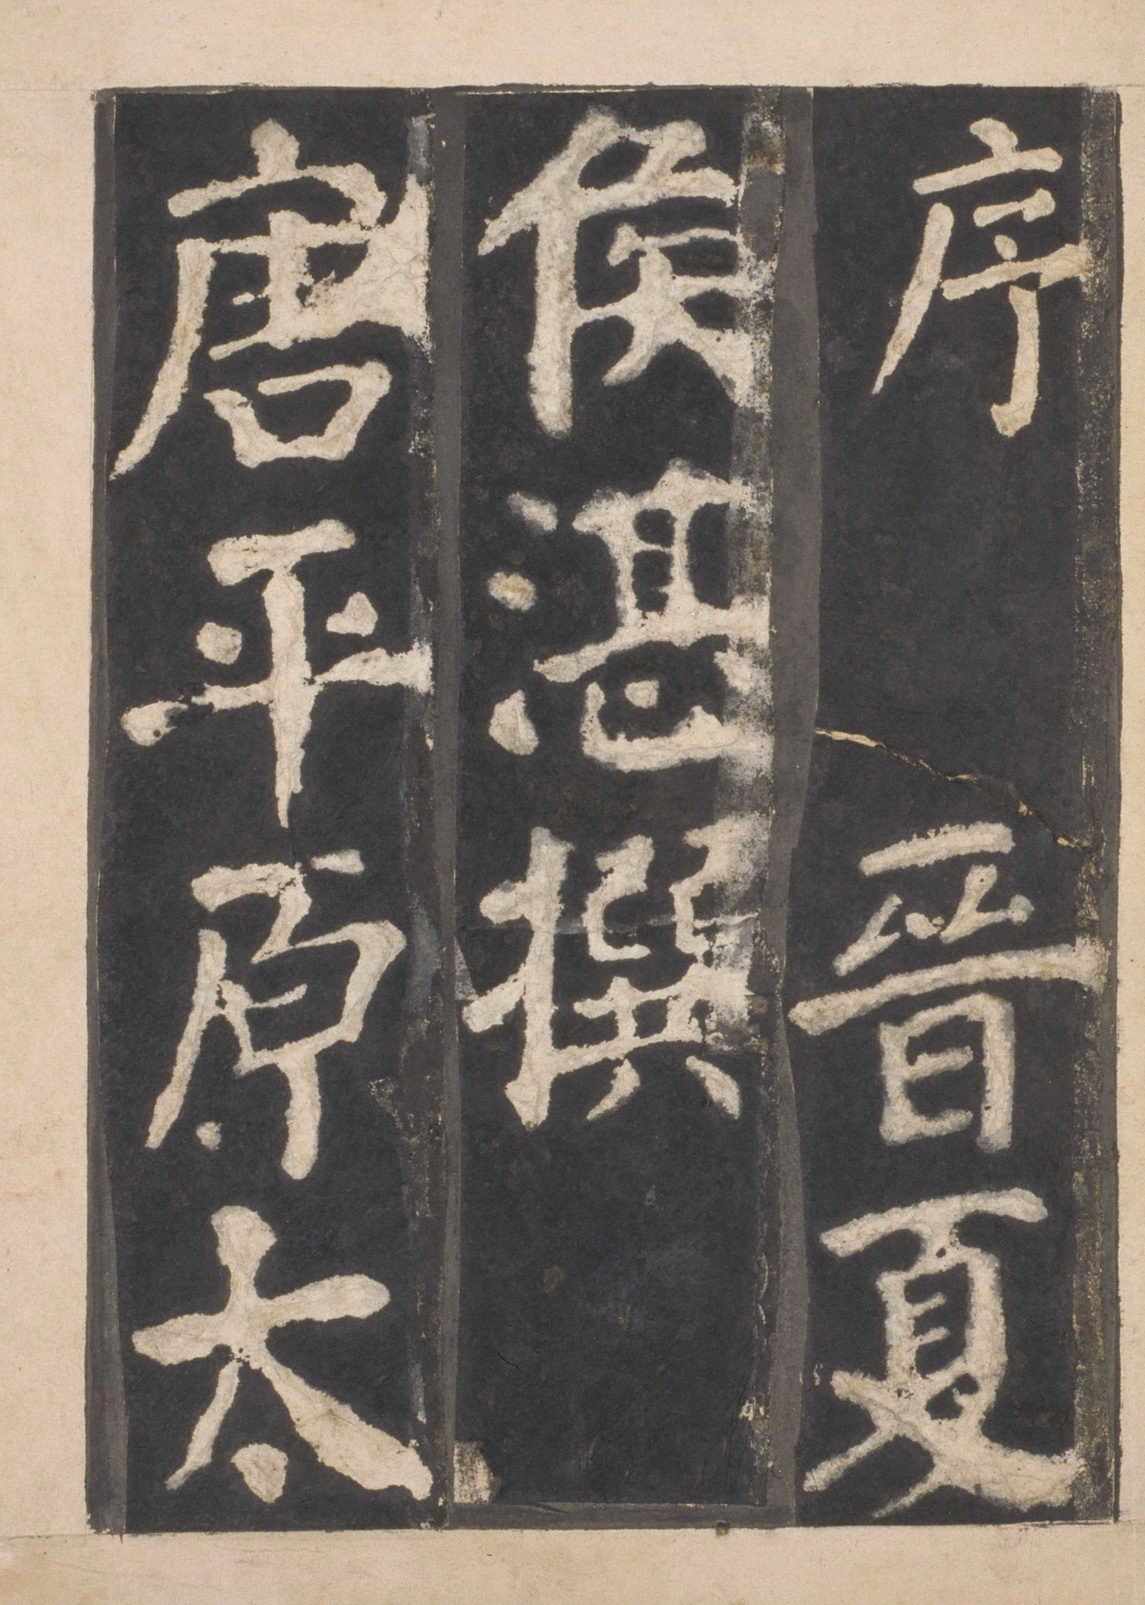 序 晉夏
侯湛撰
唐平原太